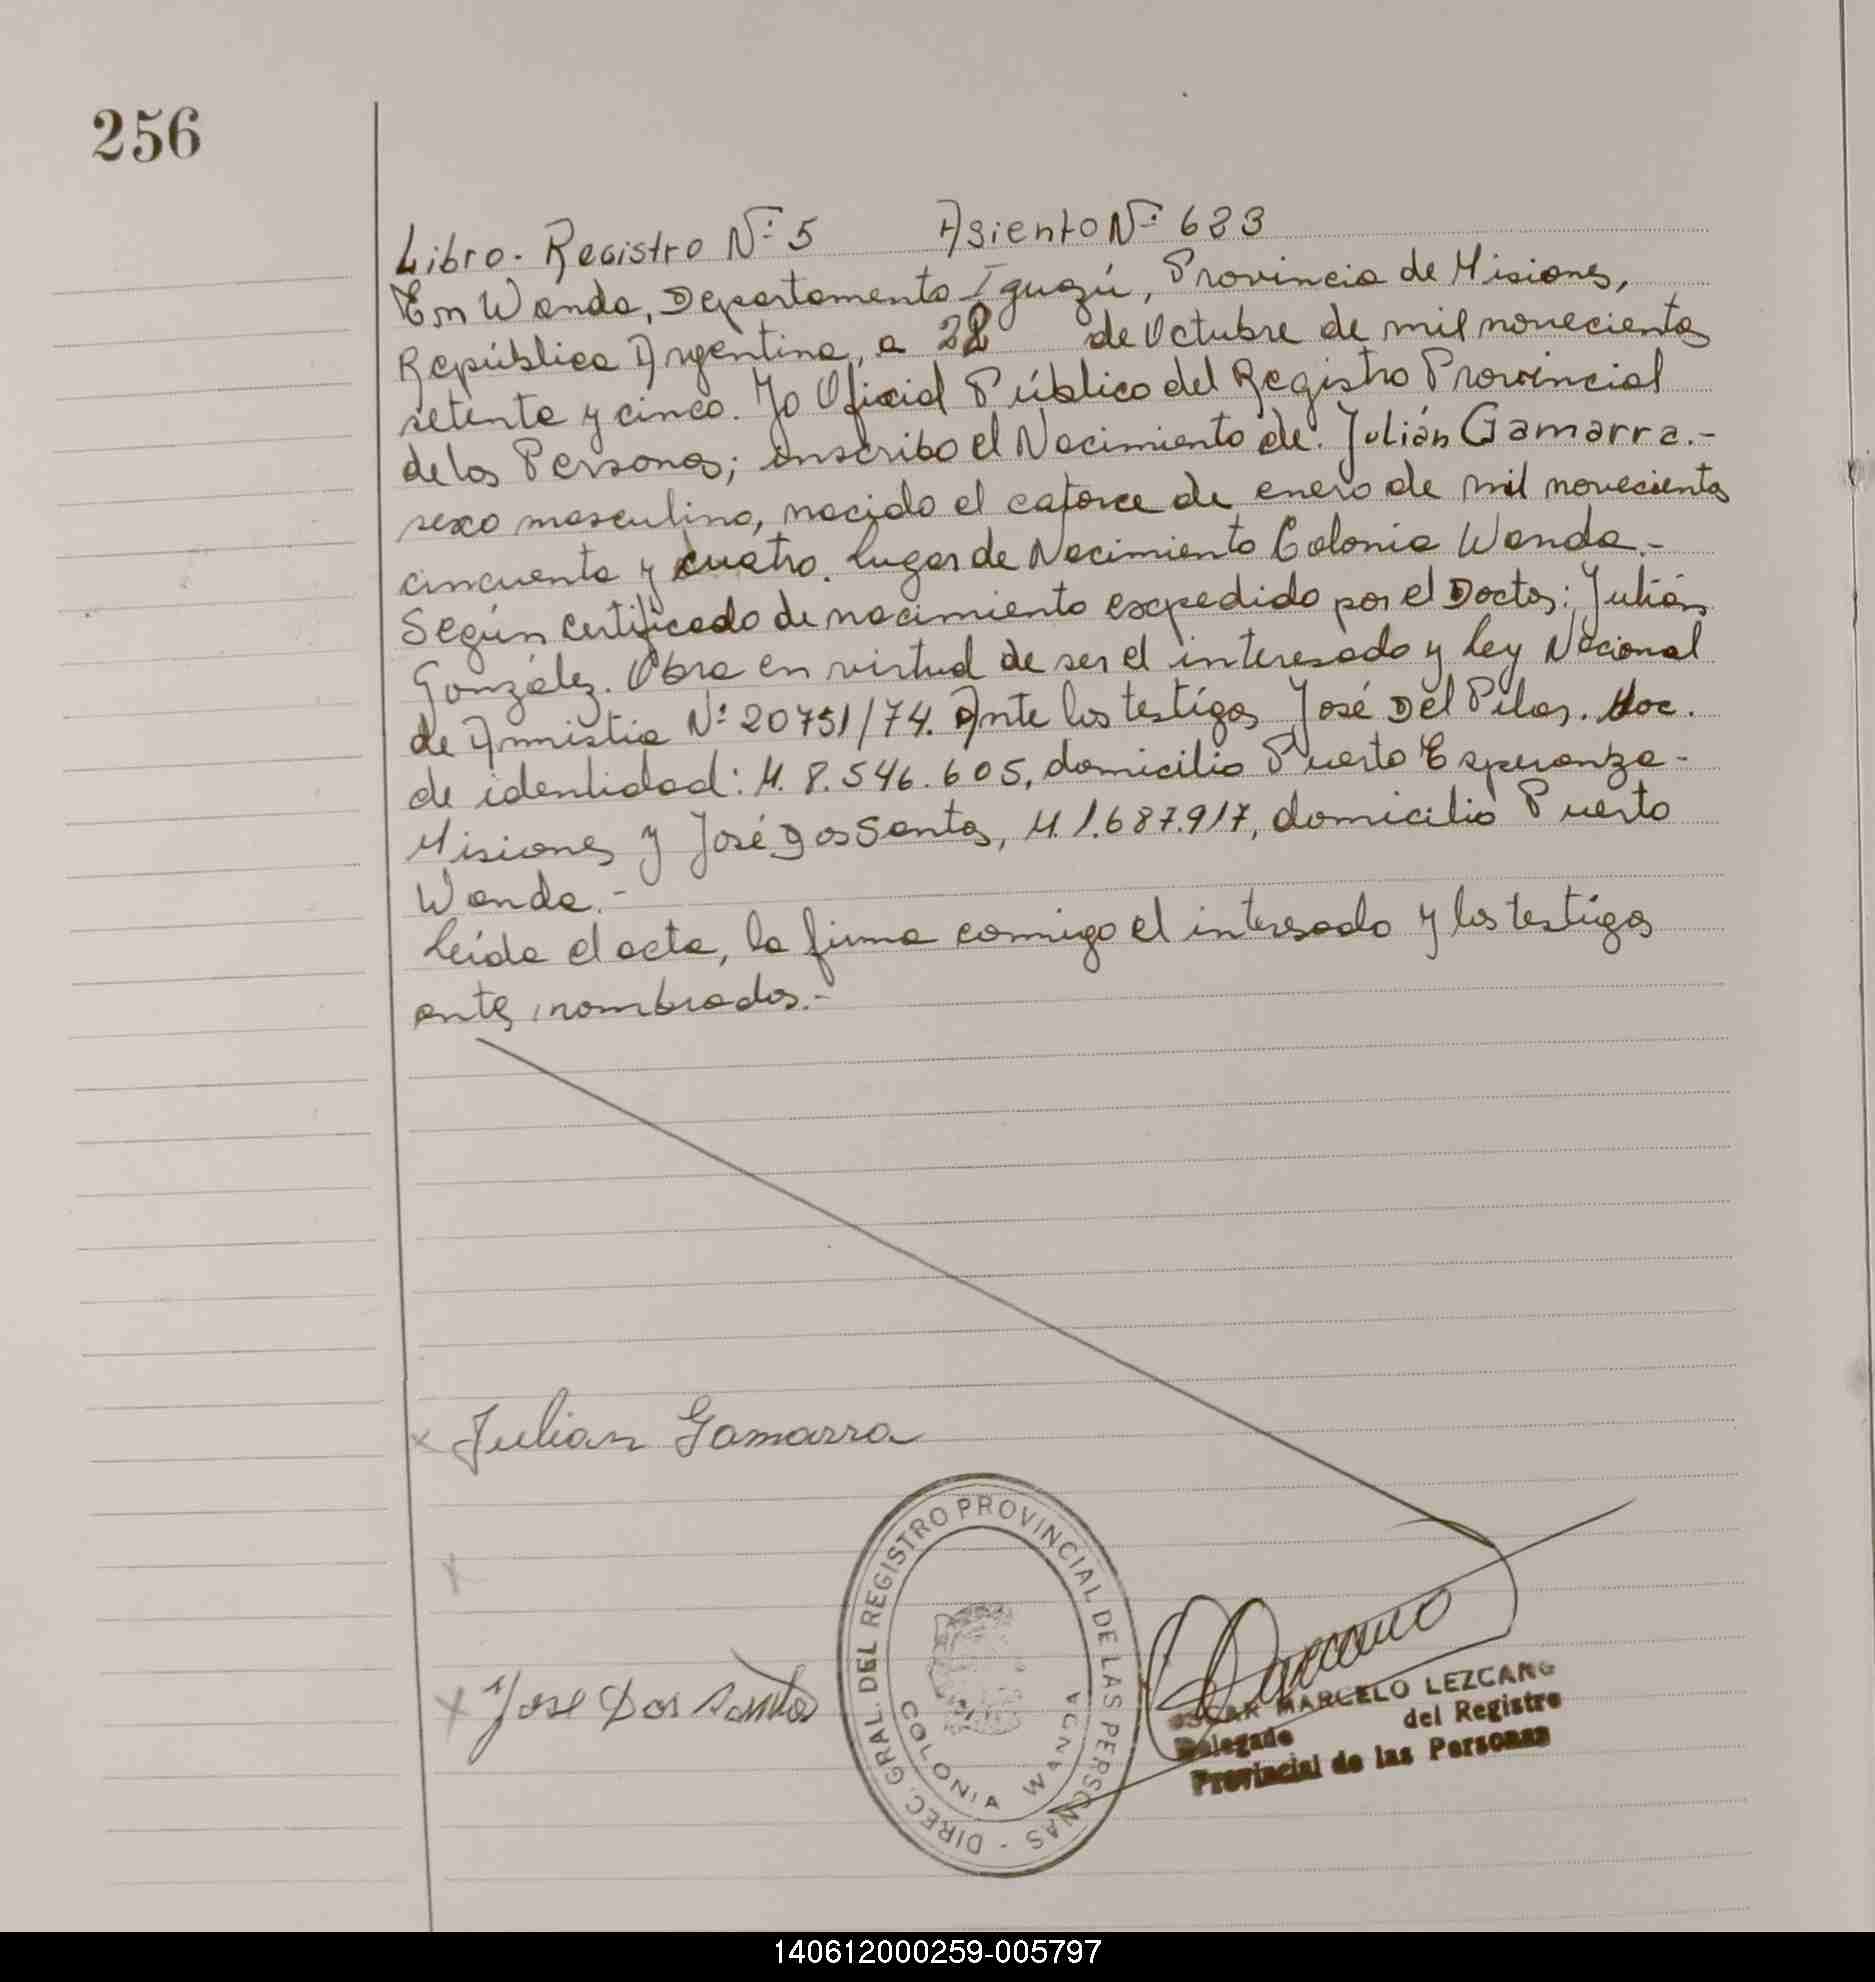 256
Libro. Registro Nº 5 Asiento Nº 633
En Wanda, Departamento Iguazú, Provincia de Misiones,
República Argentina, a de Octubre de mil novecientos
setenta y cinco. Yo Oficial Público del Registro Provincial
de las Personas; inscribo el Nacimiento de: Julián Gamarra.-
sexo masculino, nacido el catorce de enero de mil novecientos
cincuenta y cuatro. Lugar de Nacimiento Colonia Wanda.-
Según certificado de nacimiento expedido por el Doctor: Julián
González. Obra en virtud de ser el interesado y Ley Nacional
de Amnistia Nº 20751/74. Ante los testígos José Del Pilar. Doc.
de identidad: M. 8.546.605, domicilio Puerto Esperanza-
Misiones y José Dos Santos, M. 1.687.917, domicilio Puerto
Wanda.-
Leída el acta, la firma comigo el interesado y los testígos
antes nombrados.-
x Julian Gamarra
x
x Jose Dos Santos
DIREC. GRAL. DEL REGISTRO PROVINCIAL DE LAS PERSONAS -
COLONIA WANDA
OSCAR MARCELO LEZCANO
Delegado del Registro
Provincial de las Personas
140612000259-005797